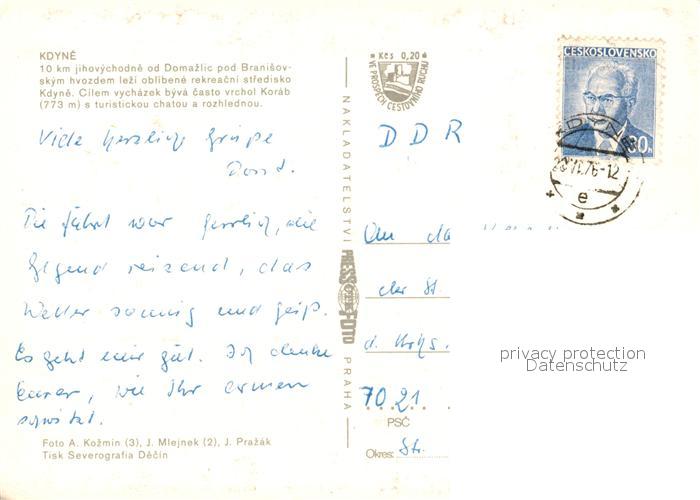 KDYNĚ
10 km jihovýchodně od Domažlic pod Branišov-
ským hvozdem leží oblíbené rekreační středisko
Kdyně. Cílem vycházek bývá často vrchol Koráb
(773 m) s turistickou chatou a rozhlednou.
Viele herzliche Grüße
Die Fahrt war herrlich, die
Gegend reizend, das
Wetter sonnig und heiß.
Es geht mir gut. Ich denke
daran, wie Ihr
Foto A. Kožmín (3), J. Mlejnek (2), J. Pražák
Tisk Severografia Děčín
NAKLADATELSTVÍ PRESSFOTO PRAHA
Kčs 0,20
VE PROSPĚCH CESTOVNÍHO RUCHU
ČESKOSLOVENSKO
30
KDYNĚ
76-12
e
DDR
An
der St.
d.
7021
PSČ
Okres: St.
privacy protection
Datenschutz